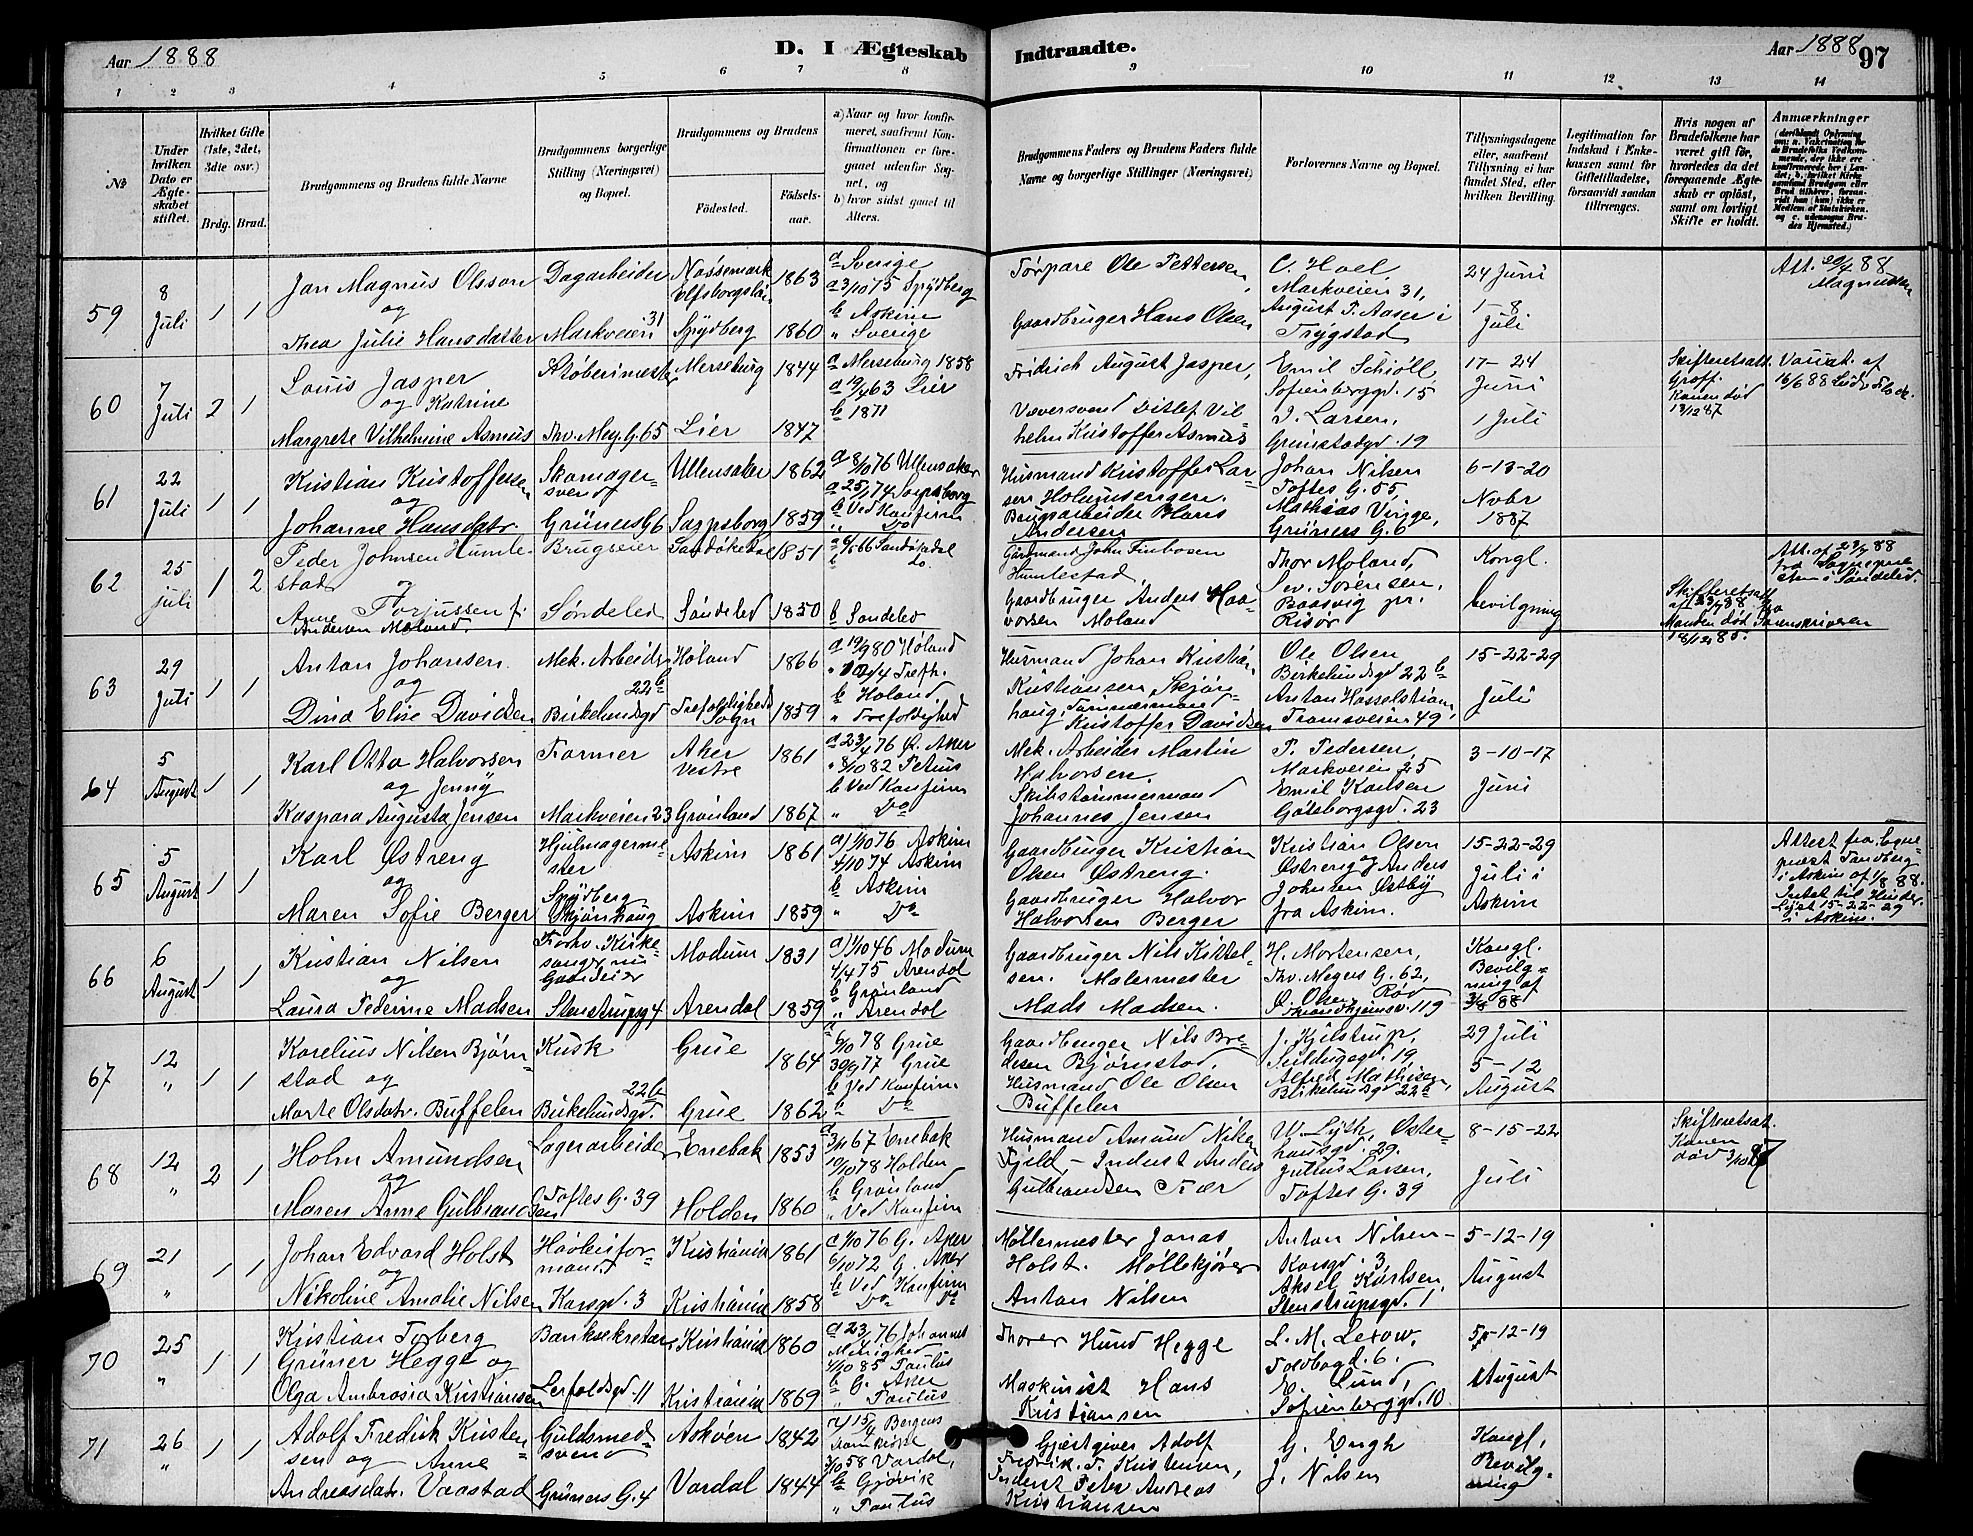 Aar 1888
D. I Ægteskab
Indtraadte.
Aar 1888
97
1 2 3 4 5 6 7 8 9 10 11 12 13 14
№
Under hvilken Dato er Ægteskabet stiftet.
Hvilket Gifte (1ste, 2det, 3die osv.)
Brdg. Brud.
Brudgommens og Brudens fulde Navne
Brudgommens borgerlige Stilling (Næringsvei) og Bopæl.
Brudgommens og Brudens
Födested.
Födselsaar.
a) Naar og hvor konfirmeret, saafremt Konfirmationen er foregaaet udenfor Sognet, og
b) hvor sidst gaaet til Alters.
Brudgommens Faders og Brudens Faders fulde Navne og borgerlige Stillinger (Næringsvei)
Forlovernes Navne og Bopæl.
Tillysningsdagene eller, saafremt Tillysning ei har fundet Sted, efter hvilken Bevilling.
Legitimation for Indskud i Enkekassen samt for Giftetilladelse, forsaavidt saadan tiltrænges.
Hvis nogen af Brudefolkene har været gift før, hvorledes da det foregaaende Ægteskab er oplöst, samt om lovligt Skifte er holdt.
Anmærkninger
59
8 Juli
1 1
Jan Magnus Olsson
og
Thea Julie Hansdatter
Dagarbeider
Markveien 31
Nössemark Elfsborgslän 1863
Spydberg 1860
a Sverige
a 3/10 75 Spydberg
b Askim
" Sverige
Torpare Ole Pettersen,
Gaardbruger Hans Olsen
C. Hoel
Markveien 31,
August T. Aaser i
Trygstad
24 Juni
1-8
Juli
Att. 20/4 88
60
7 Juli
2 1
Louis Jasper
og Katrine
Margrete Vilhelmine Asmus
Støberimester
Thv. Mey. G. 65
Merseburg 1844
Lier 1847
a Merseburg 1858
a 19/4 63 Lier
b 1871
Fridrich August Jasper,
Væversvend Ditlef Vilhelm Kristoffer Asmus
Emil Schiøll
Sofienberggd. 15
J. Larsen,
Grimstadgd. 19
17-24
Juni
1 Juli
Skifteretsatt.
Konen död
13/12 87
61
22 Juli
1 1
Kristian Kristoffersen
og
Johanne Hansdatr.
Skomagersvend
Grüners G 6
Ullensaker 1862
Sarpsborg 1859
a 8/10 76 Ullensaker
a 25/1 74 Sarpsborg
b Ved Konfirm
" Do
Husmand Kristoffer Larsen Holmsengen.
Brugsarbeider Hans
Andersen
Johan Nilsen
Toftes G. 55,
Mathias Vinge,
Grüners G. 6
6-13-20
Novbr
1887
62
25 juli
1 2
Peder Johnsen Humlestad
og
Anne Torjussen f.
Andersen Moland.
Brugseier
Söndeled
Sandøkedal 1851
Söndeled 1850
a 6/5 66 Sandøkedal
b do.
b Søndeled
Gårdmand John Finbosen
Humlestad
Gaardbruger Anders Haavorsen Moland
Thor Moland,
Sev. Sörensen,
Baasvig pr.
Risør
Kongl.
bevilgning
Skifteretsatt
Manden död
18/12 85.
Att. af 23/7 88
fra Sogneprresten i Söndeled.
63
29 Juli
1 1
Anton Johansen
og
Dina Elise Davidsen
Mek. Arbeider
Birkelundsgd 22b
Høland 1866
Trefoldigheds Sogn 1859
a 19/9 80 Høland
" 10/4 74 Trefh.
b Høland
" Trefoldighed
Husmand Johan Kristian
Kristiansen Skjønhaug, Tømmermand
Kristoffer Davidsen
Ole Olsen
Birkelundsgd 22b
Anton Hasselstrøm,
Tromsveien 49
15-22-29
Juli
64
5 August
1 1
Karl Otto Halvorsen
og Jenny
Kaspara Augusta Jensen
Former
Markveien 23
Aker Vestre 1861
Grønland 1867
a 23/4 76 V. Aker
" 8/10 82 Petrus
b Ved Konfirm
" Do
Mek. Arbeider Martin
Halvorsen.
Skibstømmermand
Johannes Jensen
P. Pedersen
Markveien 25
Emil Karlsen
Göteborgsgd. 23
3-10-17
Juni
65
5 August
1 1
Karl Østreng
og
Maren Sofie Berger
Hjulmagermester
Spydberg
Skjønhaug
Askim 1861
Askim 1859
a 1/10 76 Askim
4/10 74 Askim
b Askim
" Do
Gaardbruger Kristian
Olsen Østreng.
Gaardbruger Halvor
Halvorsen Berger
Kristian Olsen
Østreng og Anders
Johnsen Østby
fra Askim.
15-22-29
Juli i
Askim
Attest fra Sognepræst Sandberg
i Askim af 1/8 88.
Intet til Hinder.
Lyst 15-22-29
i Askim.
66
6 August
1 1
Kristian Nilsen
og
Laura Pederine Madsen
Forhv. Kirkesanger nu
Gaardeier
Stenstrupg 4
Modum 1831
Arendal 1859
a 1/10 46 Modum
4/4 75 Arendal
b Grønland
" Arendal
Gaardbruger Nils Kittelsen. Malermester
Mads Madsen.
H. Mortensen,
Thv. Meyers G. 62,
O. Olsen Rød
Trondhjemsv. 119
Kongl.
Bevilgning af
3/8 88
67
12 "
1 1
Karelius Nilsen Bjørnstad og
Marte Olsdatr. Buffelen
Kusk
Birkelundsgd. 22b
Grue 1864
Grue 1862
a 6/10 78 Grue
30/9 77 Grue
b Ved Konfirm
b Do
Gaardbruger Nils Bredesen Bjørnstad.
Husmand Ole Olsen
Buffelen
J. Kjilstrup,
Seildugsgd. 19,
Alfred Mathisen,
Birkelundsgd 22b
29 Juli
5-12
August
68
12 "
2 1
Holm Amundsen
og
Maren Anne Gulbrandsen
Lagerarbeider
Toftes G. 39
Enebak 1853
Holden 1860
a 3/11 67 Enebak
10/10 78 Holden
b Grønland
" Ved Konfirm
Husmand Amund Nilsen
Fjeld - Inderst Anders
Gulbrandsen Tiær
W. Lyth, Osterhausgd. 29.
Julius Larsen,
Toftes G. 39
8-15-22
Juli
Skifteretsat.
Konen
død 3/10 87
69
21 "
1 1
Johan Edvard Holst
og
Nikoline Amalie Nilsen
Høvleriformand
Korsgd. 3
Kristiania 1861
Kristiania 1858
a 1/10 76 G. Aker
6/10 72 G. Aker
b Ved Konfirm
" Do Do
Møllermester Jonas
Holst. Møllekjører
Anton Nilsen
Anton Nilsen
Korsgd. 3
Aksel Karlsen,
Stenstrupsgd. 1
5-12-19
August
70
25 "
1 1
Kristian Torberg
Grüner Hegge og
Olga Ambrosia Kristiansen
Banksekretær
Lerfoldsgd. 11
Kristiania 1860
Kristiania 1869
a 23/4 76 Johannes
Menighed
4/10 85 Paulus
b G. Aker
" Paulus
Thorer Hund Hegge
Maskinist Hans
Kristiansen
L. M. Lexow,
Toldbogd. 6.
E. Lund,
Sofienberggd. 10
5-12-19
August
71
26 "
1 1
Adolf Fredrik Kristensen og Anne
Andreasdatr. Vaastad
Guldsmedsvend
Grüners G. 4
Askvoen 1842
Vardal 1844
Bergens
Domkirke
3/10 58 Vardal,
b Gjøvik
" Paulus
Gjæstgiver Adolf
Fredrik T. Kristensen,
Inderst Peter Andreas
Kristiansen
G. Engh
J. Nilsen
Kongl.
Bevilgning